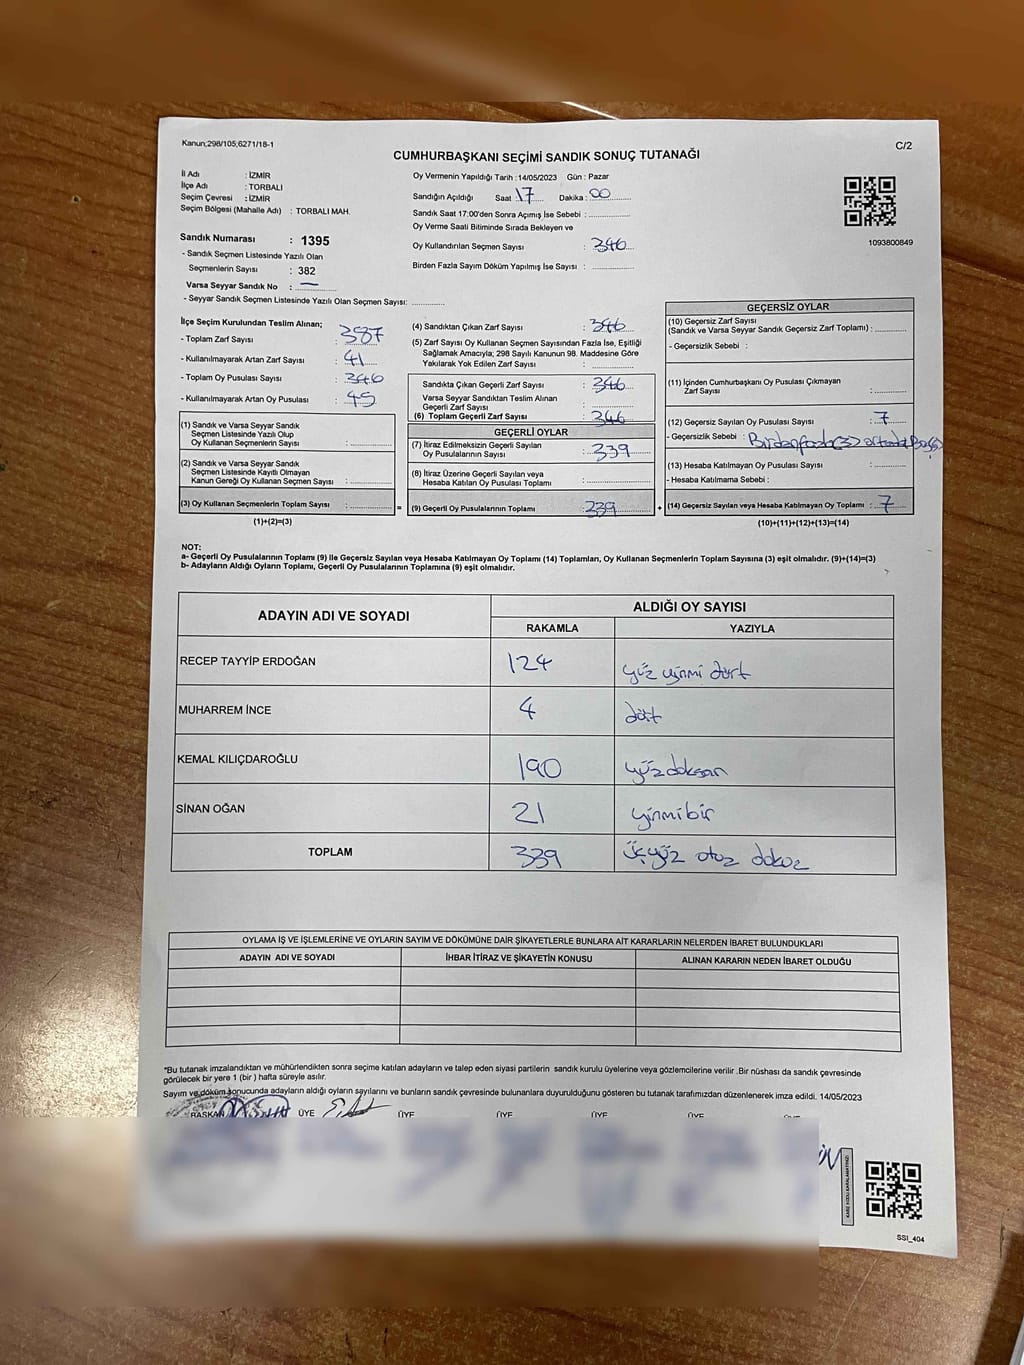 Kanun;298/105;6271/18-1
C/2
CUMHURBAŞKANI SEÇİMİ SANDIK SONUÇ TUTANAĞI
İl Adı : İZMİR
İlçe Adı : TORBALI
Seçim Çevresi : İZMİR
Seçim Bölgesi (Mahalle Adı) : TORBALI MAH.
Sandık Numarası : 1395
- Sandık Seçmen Listesinde Yazılı Olan
Seçmenlerin Sayısı : 382
Varsa Seyyar Sandık No : —
- Seyyar Sandık Seçmen Listesinde Yazılı Olan Seçmen Sayısı: ............
Oy Vermenin Yapıldığı Tarih :14/05/2023 Gün : Pazar
Sandığın Açıldığı Saat : 17 Dakika : 00
Sandık Saat 17:00'den Sonra Açımış İse Sebebi : ..............
Oy Verme Saati Bitiminde Sırada Bekleyen ve
Oy Kullandırılan Seçmen Sayısı : 346
Birden Fazla Sayım Döküm Yapılmış İse Sayısı : ..............
1093800849
İlçe Seçim Kurulundan Teslim Alınan;
- Toplam Zarf Sayısı : 387
- Kullanılmayarak Artan Zarf Sayısı : 41
- Toplam Oy Pusulası Sayısı : 346
- Kullanılmayarak Artan Oy Pusulası : 45
(1) Sandık ve Varsa Seyyar Sandık
Seçmen Listesinde Yazılı Olup
Oy Kullanan Seçmenlerin Sayısı : ..............
(2) Sandık ve Varsa Seyyar Sandık
Seçmen Listesinde Kayıtlı Olmayan
Kanun Gereği Oy Kullanan Seçmen Sayısı : ..............
(3) Oy Kullanan Seçmenlerin Toplam Sayısı : ..............
(1)+(2)=(3)
(4) Sandıktan Çıkan Zarf Sayısı : 346
(5) Zarf Sayısı Oy Kullanan Seçmen Sayısından Fazla İse, Eşitliği
Sağlamak Amacıyla; 298 Sayılı Kanunun 98. Maddesine Göre
Yakılarak Yok Edilen Zarf Sayısı : ..............
Sandıkta Çıkan Geçerli Zarf Sayısı : 346
Varsa Seyyar Sandıktan Teslim Alınan
Geçerli Zarf Sayısı : ..............
(6) Toplam Geçerli Zarf Sayısı : 346
GEÇERLİ OYLAR
(7) İtiraz Edilmeksizin Geçerli Sayılan
Oy Pusulalarının Sayısı : 339
(8) İtiraz Üzerine Geçerli Sayılan veya
Hesaba Katılan Oy Pusulası Toplamı : ..............
= (9) Geçerli Oy Pusulalarının Toplamı : 339 +
GEÇERSİZ OYLAR
(10) Geçersiz Zarf Sayısı
(Sandık ve Varsa Seyyar Sandık Geçersiz Zarf Toplamı) : ..........
- Geçersizlik Sebebi :
(11) İçinden Cumhurbaşkanı Oy Pusulası Çıkmayan
Zarf Sayısı : ..........
(12) Geçersiz Sayılan Oy Pusulası Sayısı : 7
- Geçersizlik Sebebi : Birdenfazla(3)
(13) Hesaba Katılmayan Oy Pusulası Sayısı : ..........
- Hesaba Katılmama Sebebi :
(14) Geçersiz Sayılan veya Hesaba Katılmayan Oy Toplamı : 7
(10)+(11)+(12)+(13)=(14)
NOT:
a- Geçerli Oy Pusulalarının Toplamı (9) ile Geçersiz Sayılan veya Hesaba Katılmayan Oy Toplamı (14) Toplamları, Oy Kullanan Seçmenlerin Toplam Sayısına (3) eşit olmalıdır. (9)+(14)=(3)
b- Adayların Aldığı Oyların Toplamı, Geçerli Oy Pusulalarının Toplamına (9) eşit olmalıdır.
ADAYIN ADI VE SOYADI ALDIĞI OY SAYISI
RAKAMLA YAZIYLA
RECEP TAYYİP ERDOĞAN 124 yüz yirmi dört
MUHARREM İNCE 4 dört
KEMAL KILIÇDAROĞLU 190 yüzdoksan
SİNAN OĞAN 21 yirmibir
TOPLAM 339 üçyüz otuz dokuz
OYLAMA İŞ VE İŞLEMLERİNE VE OYLARIN SAYIM VE DÖKÜMÜNE DAİR ŞİKAYETLERLE BUNLARA AİT KARARLARIN NELERDEN İBARET BULUNDUKLARI
ADAYIN ADI VE SOYADI İHBAR İTİRAZ VE ŞİKAYETİN KONUSU ALINAN KARARIN NEDEN İBARET OLDUĞU
*Bu tutanak imzalandıktan ve mühürlendikten sonra seçime katılan adayların ve talep eden siyasi partilerin sandık kurulu üyelerine veya gözlemcilerine verilir .Bir nüshası da sandık çevresinde
görülecek bir yere 1 (bir ) hafta süreyle asılır.
Sayım ve döküm sonucunda adayların aldığı oyların sayılarını ve bunların sandık çevresinde bulunanlara duyurulduğunu gösteren bu tutanak tarafımızdan düzenlenerek imza edildi. 14/05/2023
BAŞKAN ÜYE ÜYE ÜYE ÜYE ÜYE ÜYE
SSI_404